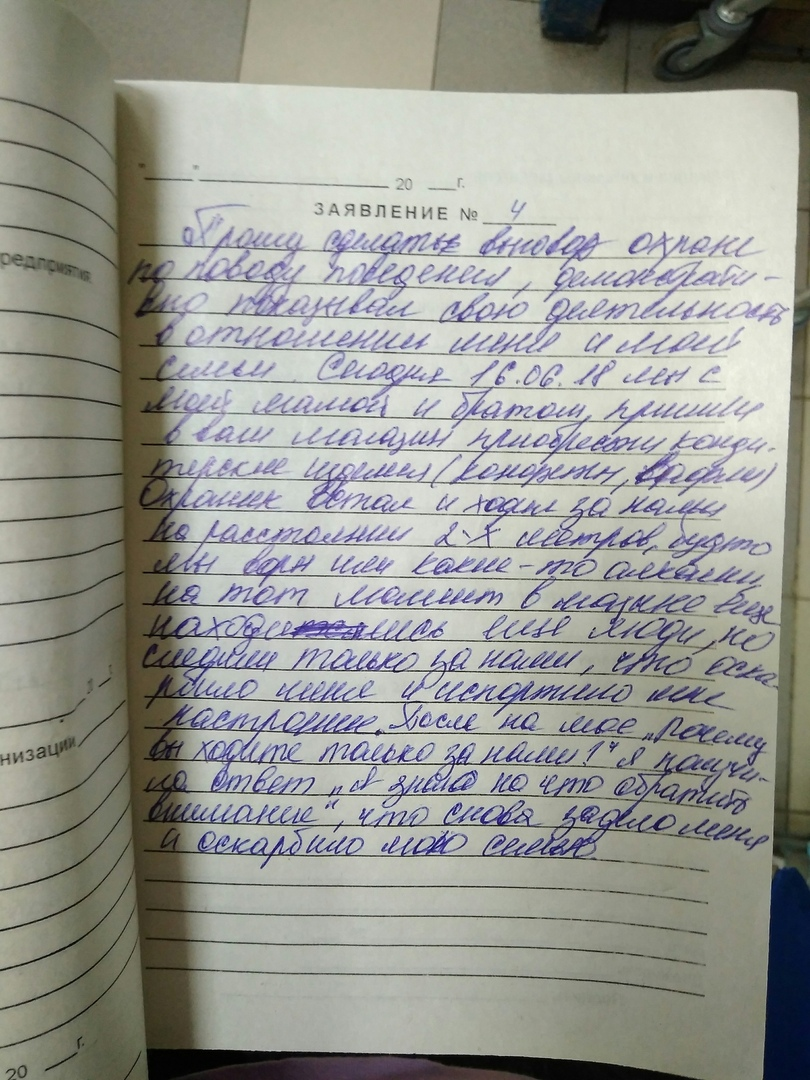 "___"___ 20 __г.
ЗАЯВЛЕНИЕ № 4
Прошу сделать вывовод охране
по поводу поведения, демонстрати-
вно показывал свою деятельность
в отношении меня и моей
семьи. Сегодня 16.06.18 мы с
моей мамой и братом, пришли
в ваш магазин приобрести конди-
терские изделия (конфеты,
Охраник встал и ходил за нами
на расстоянии 2-х метров, будто
мы воры или какие-то алкаши
на тот момент в еще
находились еще люди, но
следили только за нами, что оска-
рбило меня и испортило мне
настроение. После на мое „Почему
вы ходите только за нами?" Я получи-
ла ответ „Я знаю на что обратить
внимание", что снова задело меня
и оскарбило мою семью.
редприятия:
20 г.
низации
20 __г.